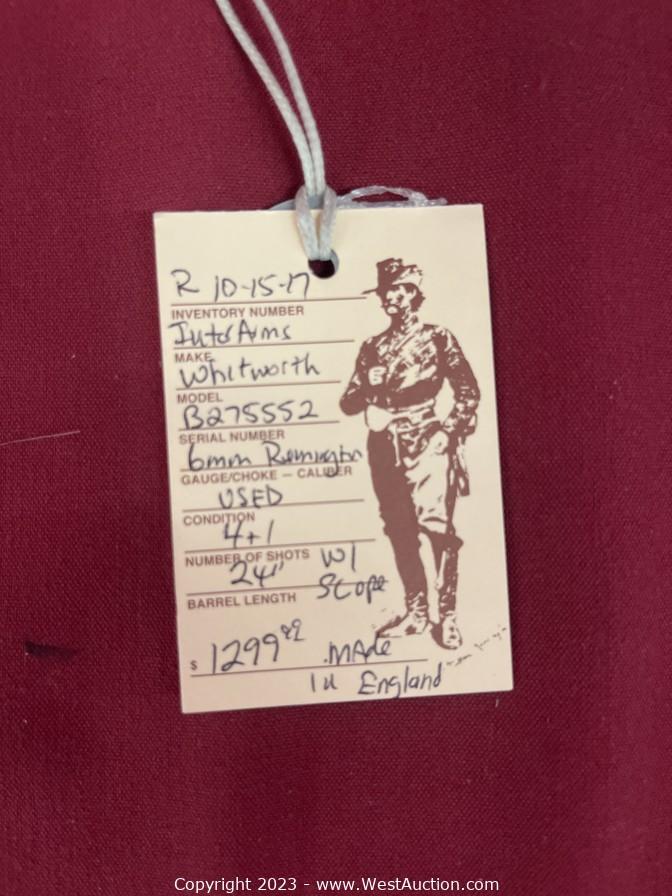 R 10-15-17
INVENTORY NUMBER
InterArms
MAKE
Whitworth
MODEL
B275552
SERIAL NUMBER
6mm Remington
GAUGE/CHOKE — CALIBER
USED
CONDITION
4+1
NUMBER OF SHOTS W/
24" Scope
BARREL LENGTH
$ 1299.99 MAde
In England
Copyright 2023 - www.WestAuction.com